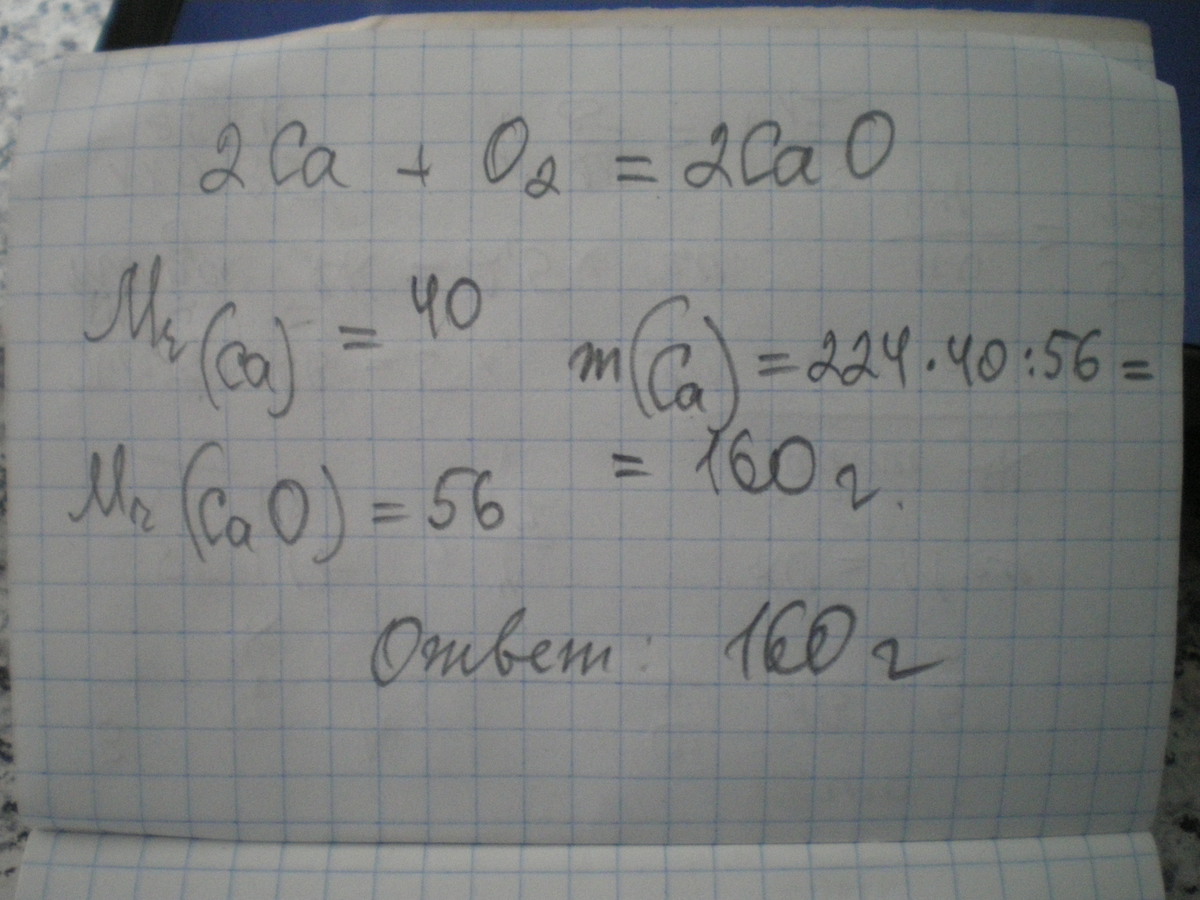 2Ca + O₂ = 2CaO
Mr(Ca) = 40
m(Ca) = 224·40:56 =
= 160 г.
Mr(CaO) = 56
Ответ: 160 г